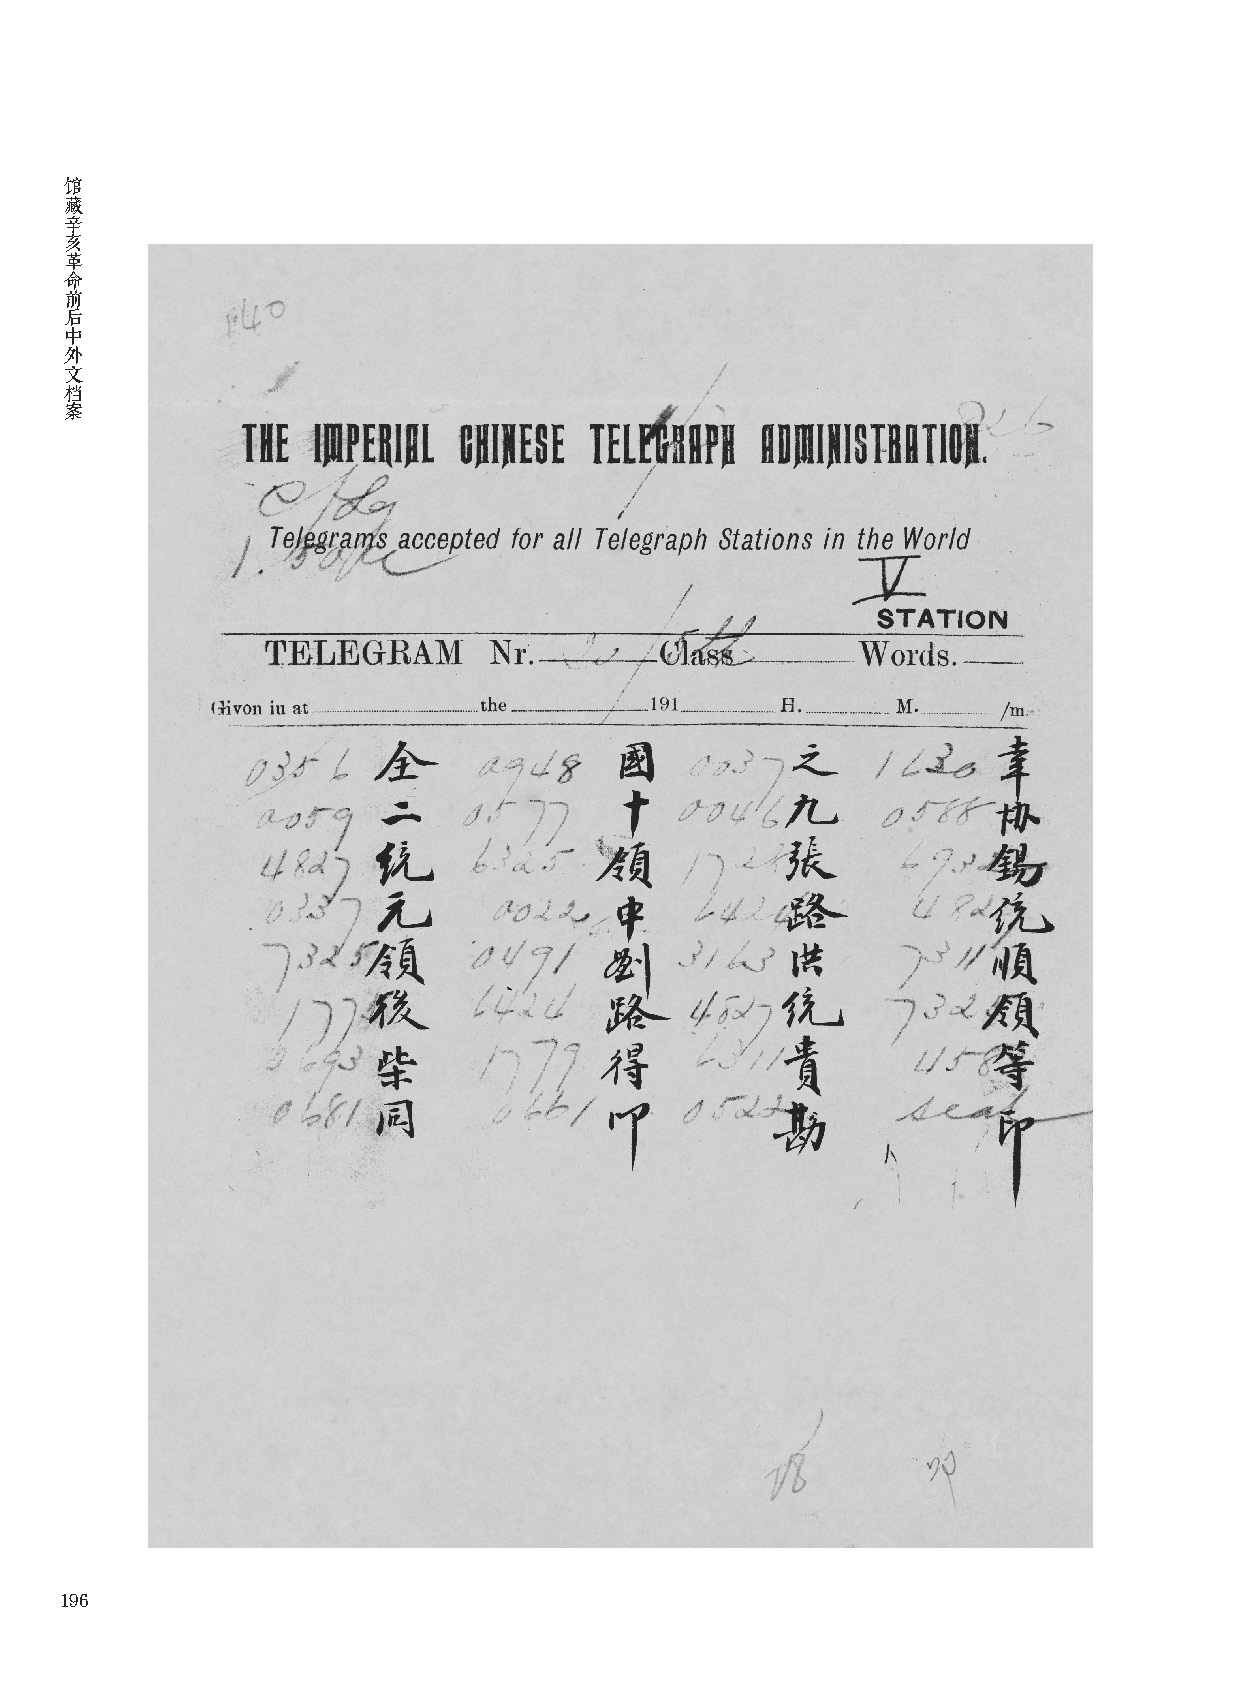 馆藏辛亥革命前后中外文档案
140
THE IMPERIAL CHINESE TELEGRAPH ADMINISTRATION.
Telegrams accepted for all Telegraph Stations in the World
V
STATION
TELEGRAM Nr. Class Words.
Givon in at the 191 H. M. /m.
0356 全 0948 國 0037 之 1630 幸
0059 二 0577 十 0046 九 0588 协
4827 统 6325 領 1728 張 6932 錫
0337 元 0022 中 6424 路 482 统
7325 領 0491 劉 3163 洪 7311 順
177 後 6424 路 4827 统 732 領
3693 柴 1779 得 6311 貴 458 等
0681 同 0661 叩 0522 勘 seal 印
196